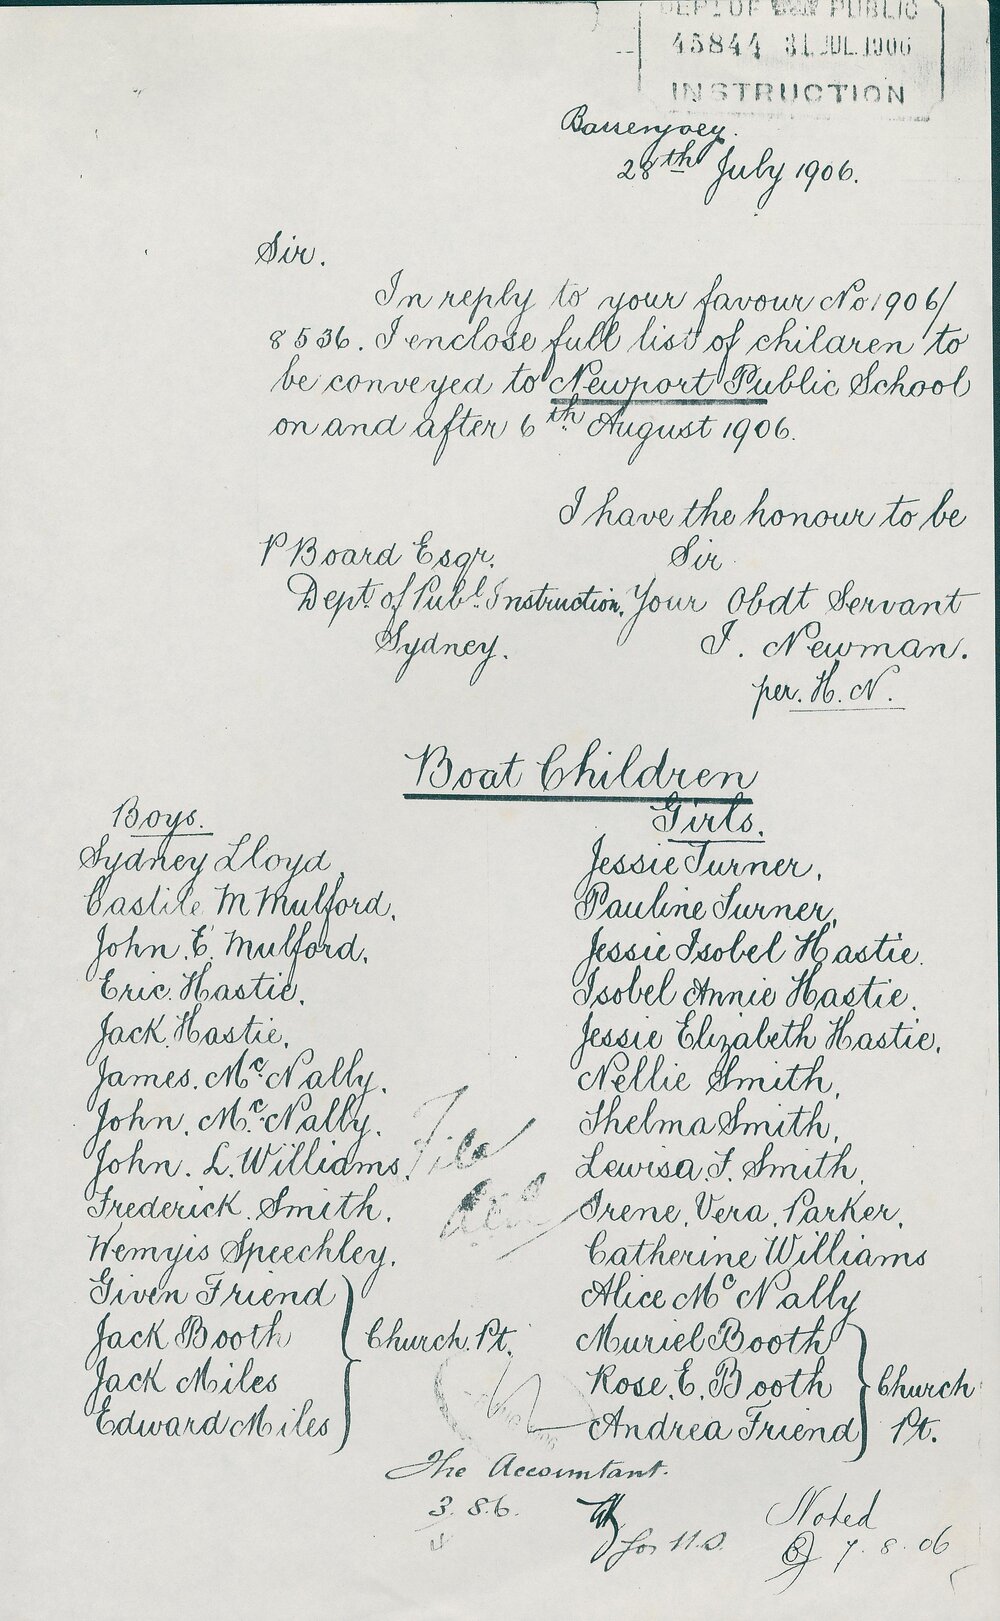 DEPT OF PUBLIC
45844 31 JUL 1906
INSTRUCTION
Barrenjoey.
28th July 1906.
Sir.
In reply to your favour No 1906/
8536. I enclose full list of children to
be conveyed to Newport Public School
on and after 6th August 1906.
I have the honour to be
P Board Esqr. Sir
Dept. of Publ. Instruction. Your Obdt Servant
Sydney. J. Newman.
per. H. N.
Boat Children
Boys. Girls.
Sydney Lloyd, Jessie Turner,
Castile M Mulford, Pauline Turner,
John. E. Mulford, Jessie Isobel Hastie.
Eric. Hastie, Isobel Annie Hastie.
Jack. Hastie, Jessie Elizabeth Hastie,
James. Mc. Nally, Nellie Smith,
John. Mc. Nally, Thelma Smith,
John. L. Williams, Lewisa. J. Smith,
Frederick. Smith, Irene. Vera. Parker,
Wemyis Speechley, Catherine Williams
Given Friend Alice Mc Nally
Jack Booth Church. Pt. Muriel Booth
Jack Miles Rose. E. Booth Church
Edward Miles Andrea Friend Pt.
File
The Accountant.
3. 8.6. Noted
for U.S. 7. 8. 06